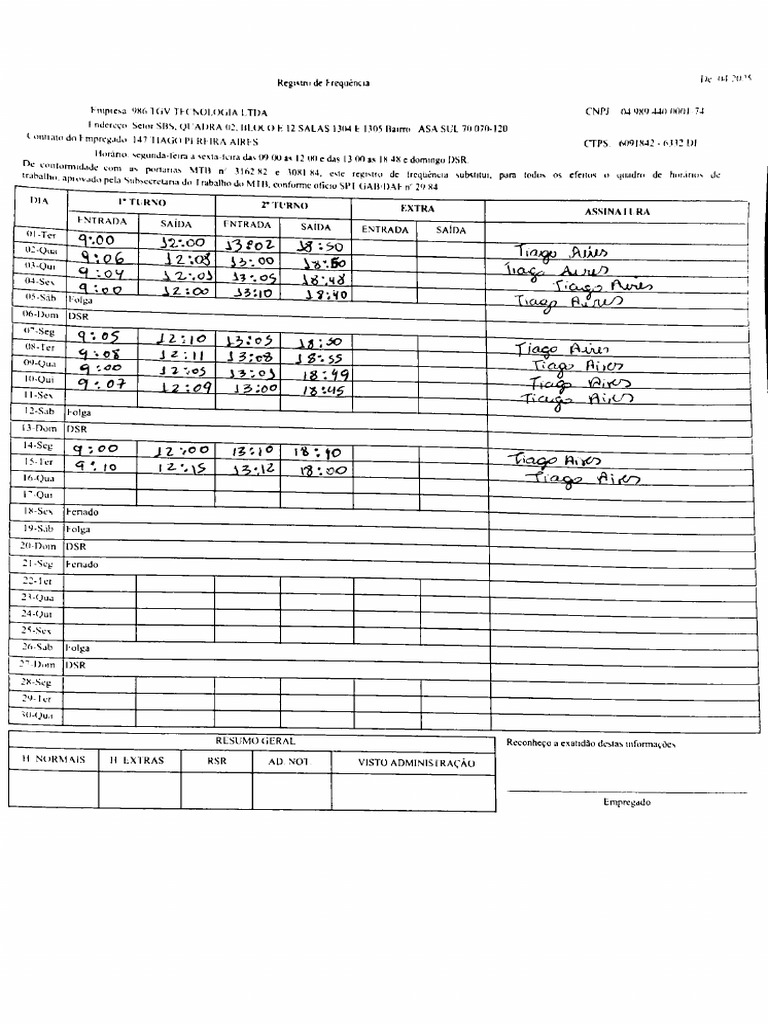 De 04 2025
Registro de Frequência
Empresa 986 TGV TECNOLOGIA LTDA CNPJ 04 989 440 0001 74
Endereço Setor SBS, QUADRA 02, BLOCO E 12 SALAS 1304 E 1305 Bairro ASA SUL 70 070-120
Contrato do Empregado 147 TIAGO PEREIRA AIRES CTPS. 6091842 - 6332 DF
Horário segunda-feira a sexta-feira das 09 00 as 12 00 e das 13 00 as 18 48 e domingo DSR.
De conformidade com as portarias MTB nº 3162 82 e 3081 84, este registro de frequência substitui, para todos os efeitos o quadro de horários de
trabalho, aprovado pela Subsecretaria do Trabalho do MTB, conforme oficio SPT GAB/DAF nº 29 84
DIA 1º TURNO 2º TURNO EXTRA ASSINATURA
ENTRADA SAÍDA ENTRADA SAÍDA ENTRADA SAÍDA
01-Ter 9:00 12:00 13:02 18:50 Tiago Aires
02-Qua 9:06 12:08 13:00 18:50 Tiago Aires
03-Qui 9:04 12:05 13:05 18:48 Tiago Aires
04-Sex 9:00 12:00 13:10 18:40 Tiago Aires
05-Sáb Folga
06-Dom DSR
07-Seg 9:05 12:10 13:05 18:50 Tiago Aires
08-Ter 9:08 12:11 13:08 18:55 Tiago Aires
09-Qua 9:00 12:05 13:01 18:49 Tiago Aires
10-Qui 9:07 12:09 13:00 18:45 Tiago Aires
11-Sex
12-Sab Folga
13-Dom DSR
14-Seg 9:00 12:00 13:10 18:40 Tiago Aires
15-Ter 9:10 12:15 13:12 18:00 Tiago Aires
16-Qua
17-Qui
18-Sex Feriado
19-Sab Folga
20-Dom DSR
21-Seg Feriado
22-Ter
23-Qua
24-Qui
25-Sex
26-Sab Folga
27-Dom DSR
28-Seg
29-Ter
30-Qua
RESUMO GERAL
H NORMAIS H EXTRAS RSR AD. NOT. VISTO ADMINISTRAÇÃO
Reconheço a exatidão destas informações
Empregado